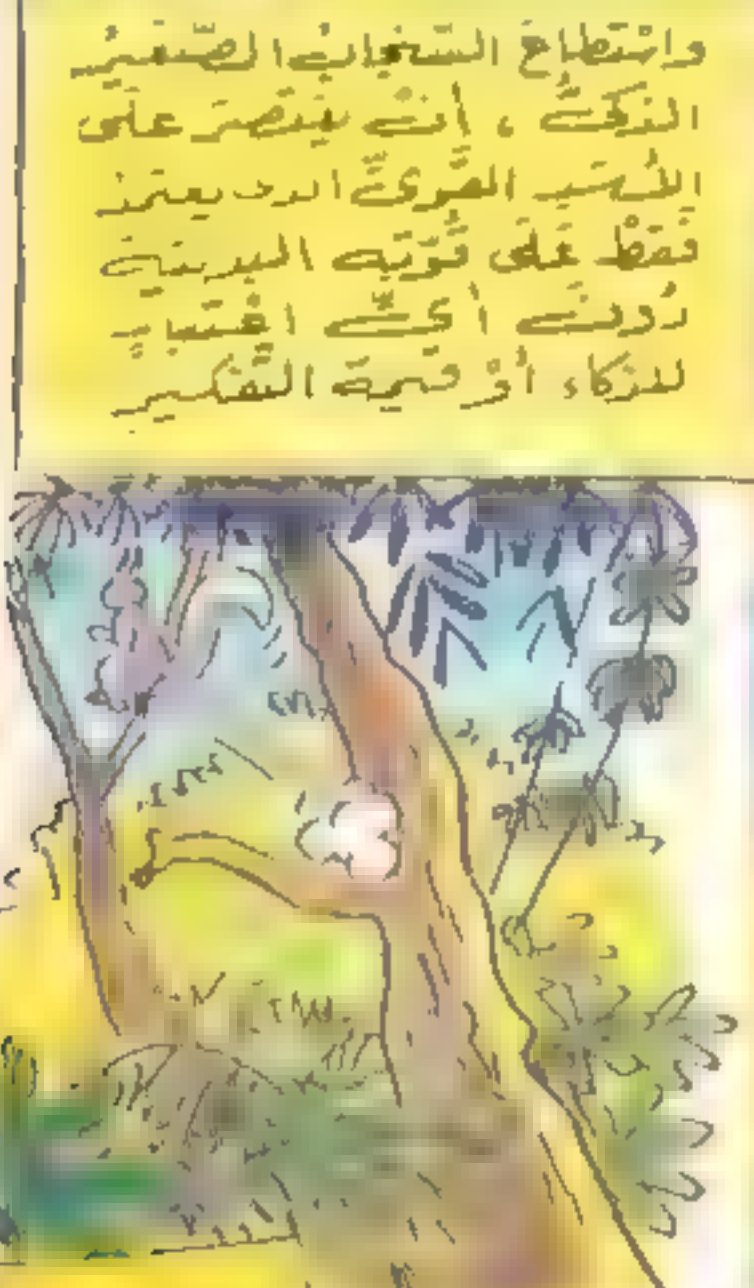 واسْتطاعَ السّنجابُ الصّغيرُ
الذكيُّ ، أنْ ينتصرَ على
الأسَدِ القَويِّ الذي يعتمدُ
فقطْ عَلى قُوّتِه البدنيةِ
دُونَ أيِّ اعْتبارٍ
للذكاءِ أوْ قيمةِ التّفكيرِ